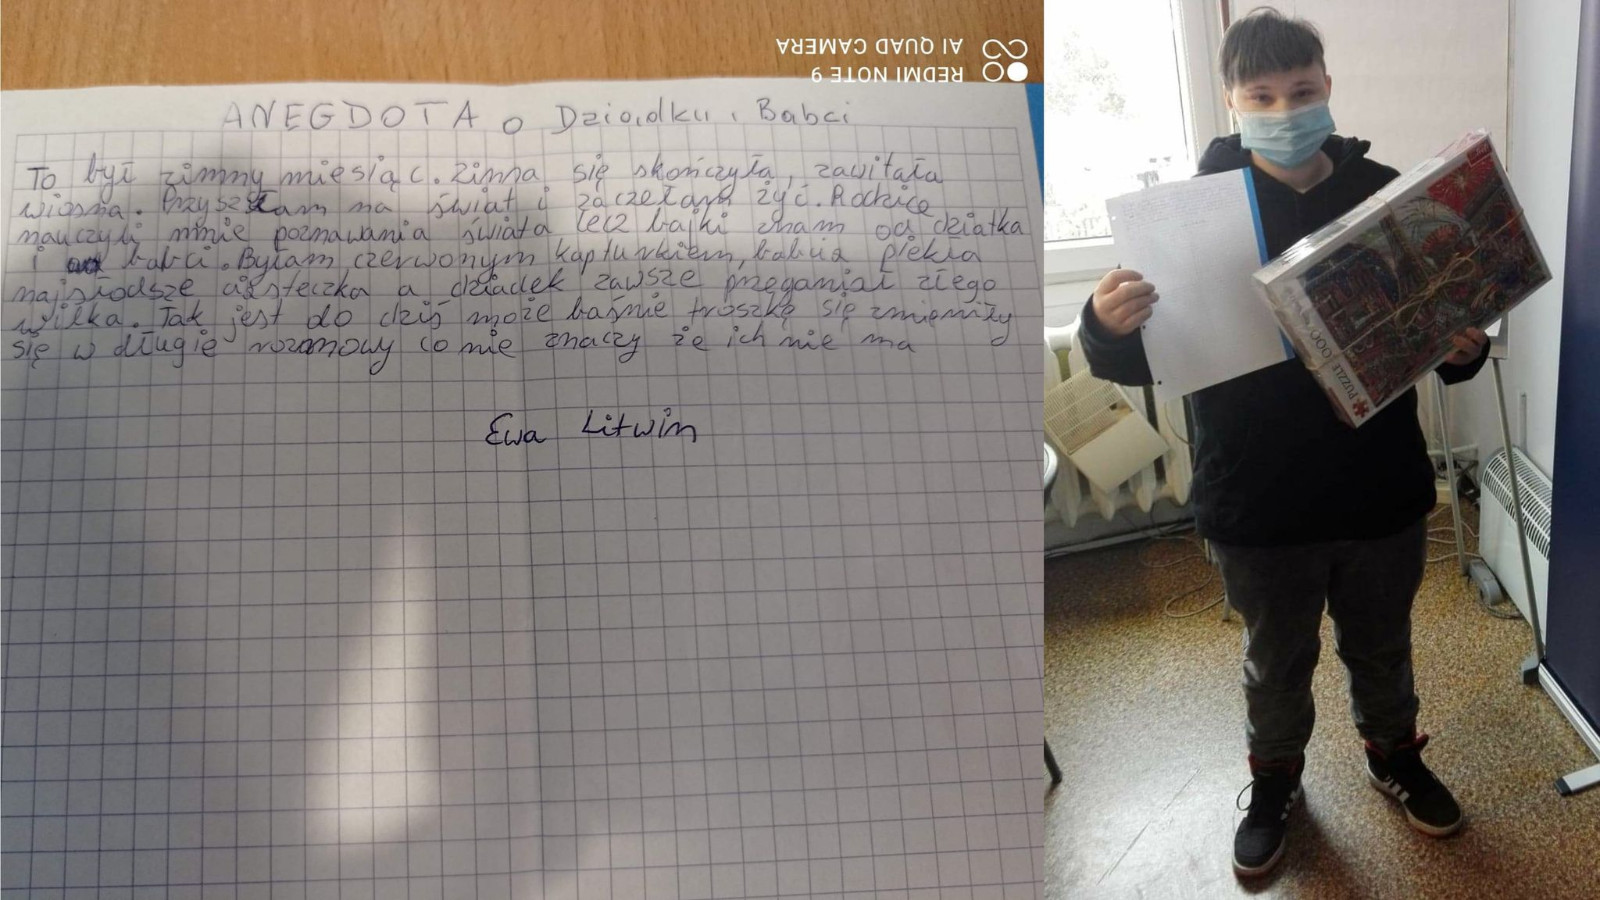 REDMI NOTE 9
AI QUAD CAMERA
ANEGDOTA o Dziadku i Babci
To był zimny miesiąc. Zimna się skończyła, zawitała
wiosna. Przyszłam na świat i zaczełam żyć. Rodzice
nauczyli mnie poznawania świata lecz bajki znam od dziatka
i babci. Byłam czerwonym kapturkiem, babcia piekła
najsłodsze ciasteczka a dziadek zawsze przeganiał złego
wilka. Tak jest do dziś może baśnie troszkę się zmieniły
się w długie rozmowy co nie znaczy że ich nie ma
Ewa Litwin
PUZZLE 1000